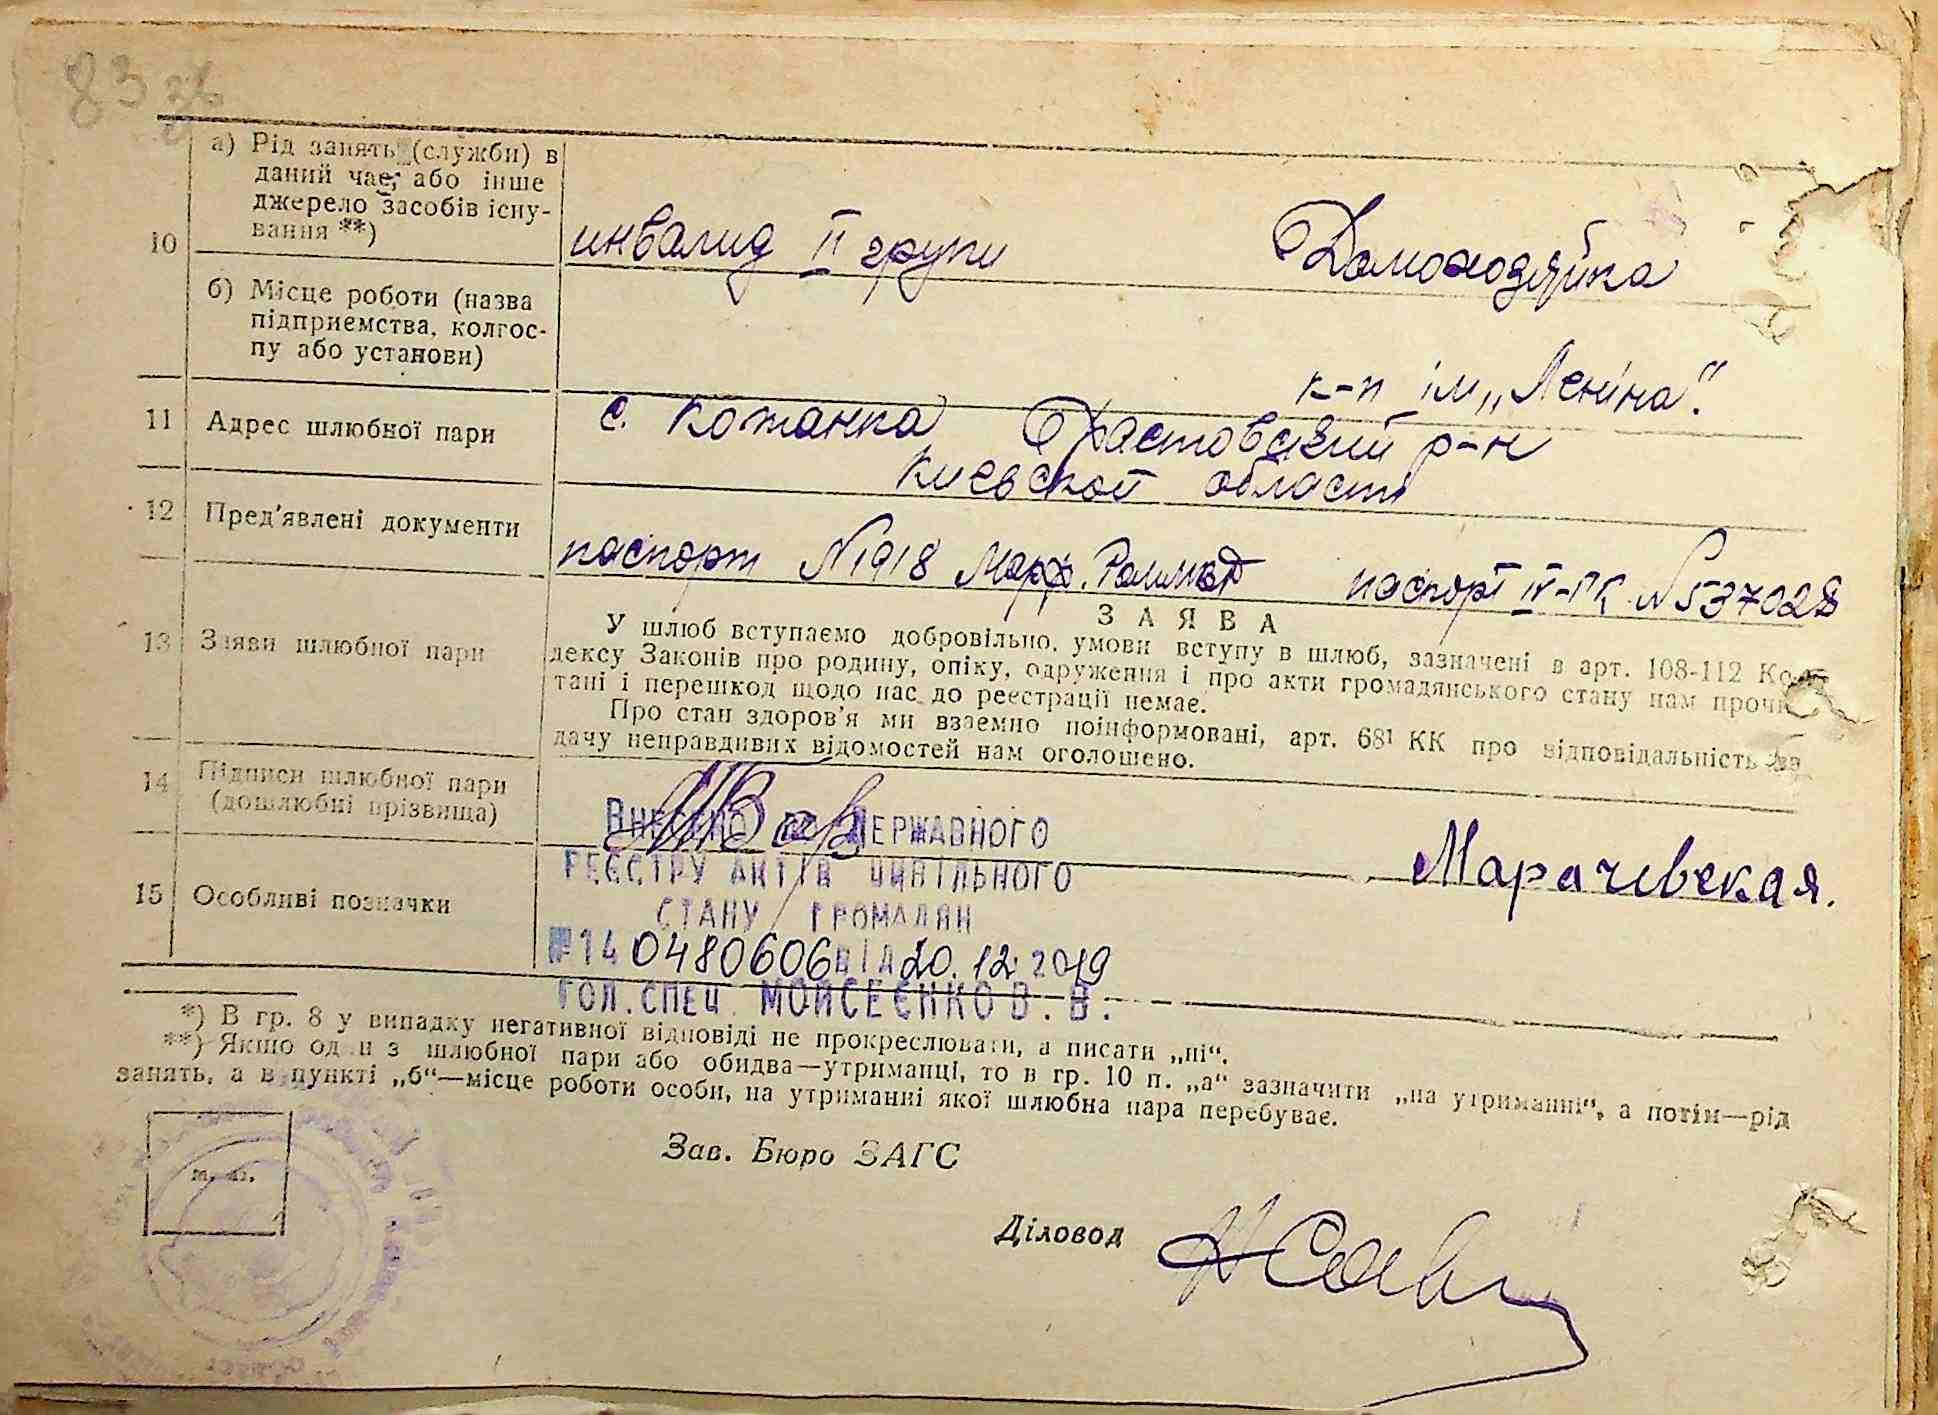 83 зв
10
а) Рід занять (служби) в
даний час, або інше
джерело засобів існу-
вання **)
инвалид II групи
Домохозяйка
б) Місце роботи (назва
підприємства, колгос-
пу або установи)
к-п ім „Леніна".
11 Адрес шлюбної пари
с. Кожанка Фастовский р-н
Киевской области
12 Пред'явлені документи
паспорт №1918
паспорт IV-ГК №537028
13 Заяви шлюбної пари
ЗАЯВА
У шлюб вступаємо добровільно, умови вступу в шлюб, зазначені в арт. 108-112 Ко-
дексу Законів про родину, опіку, одруження і про акти громадянського стану нам прочи-
тані і перешкод щодо нас до реєстрації немає.
Про стан здоров'я ми взаємно поінформовані, арт. 68¹ КК про відповідальність за
дачу неправдивих відомостей нам оголошено.
14 Підписи шлюбної пари
(дошлюбні прізвища)
Марачевская.
15 Особливі позначки
Внесено до Державного
реєстру актів цивільного
стану громадян
№14 0480606 від 20.12.2019
гол.спец. Мойсеєнко В.В.
*) В гр. 8 у випадку негативної відповіді не прокреслювати, а писати „ні“.
**) Якщо один з шлюбної пари або обидва—утриманці, то в гр. 10 п. „а“ зазначити „на утриманні“, а потім—рід
занять, а в пункті „б“—місце роботи особи, на утриманні якої шлюбна пара перебуває.
м. п.
Зав. Бюро ЗАГС
Діловод